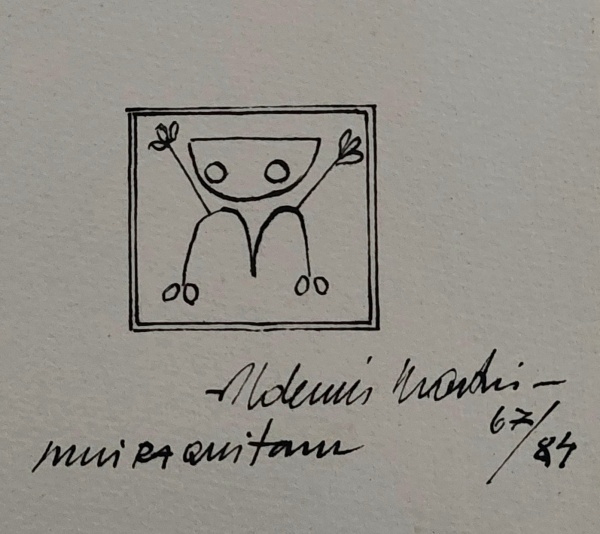 Aldemir Martins
muiraquitam 67/84